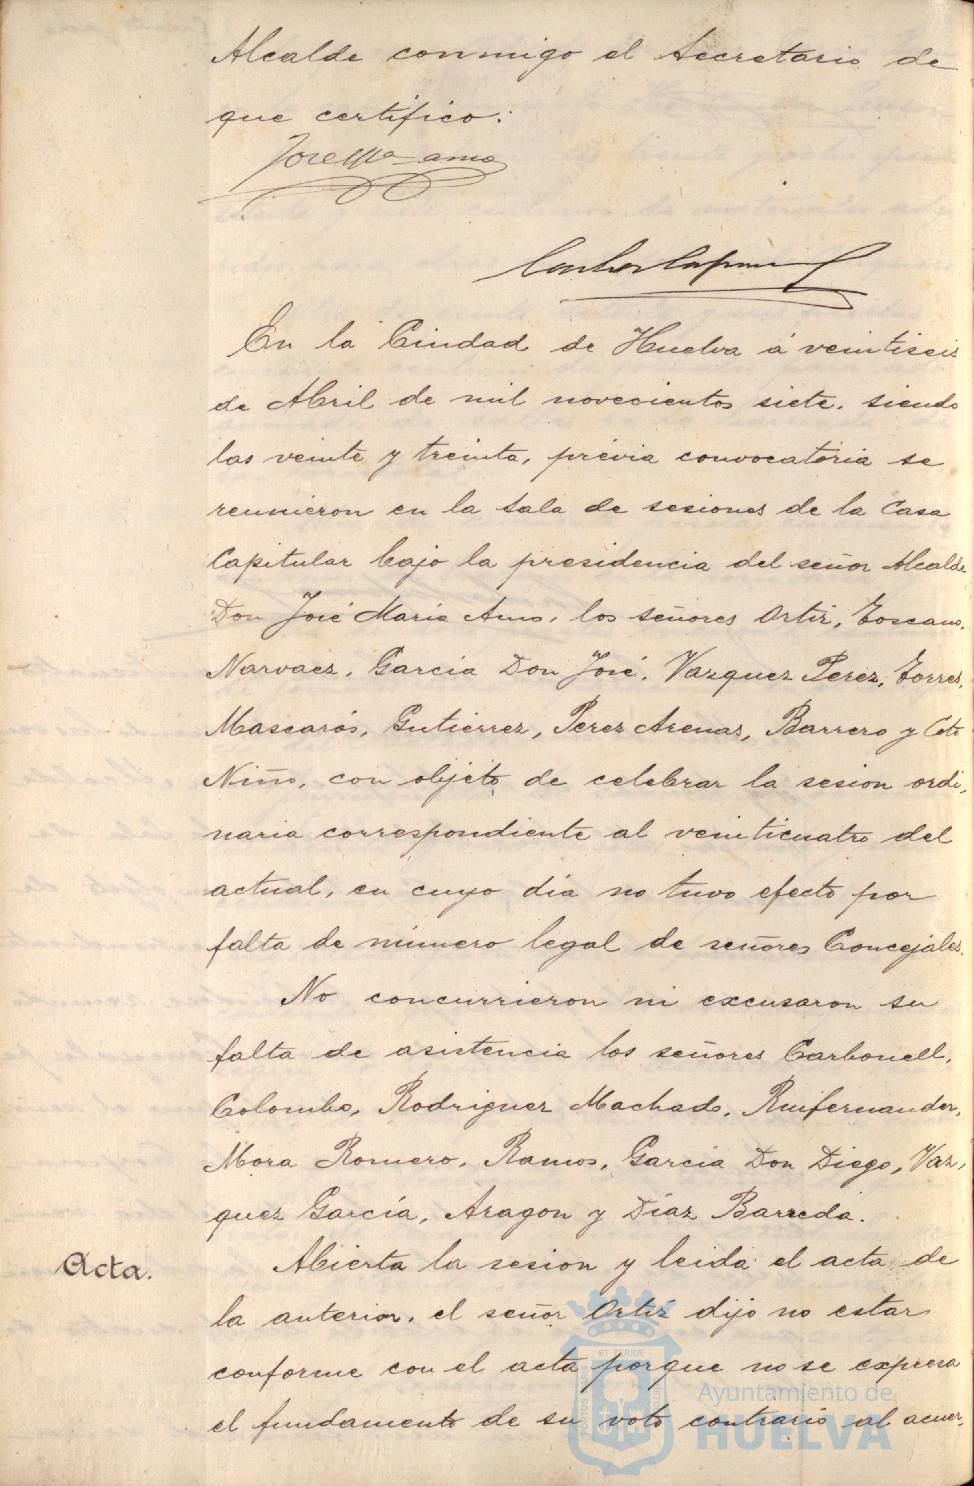 Alcalde conmigo el Secretario de
que certifico:
José Mª Amo
En la Ciudad de Huelva á veintiseis
de Abril de mil novecientos siete, siendo
las veinte y treinta, prévia convocatoria se
reunieron en la Sala de sesiones de la Casa
Capitular bajo la presidencia del señor Alcalde
Don José Maria Amo, los señores Ortiz, Toscano,
Narvaez, Garcia Don José, Vazquez Perez, Torres,
Mascarós, Gutiérrez, Perez Arenas, Barrero y Coto
Niño, con objeto de celebrar la sesion ordi,
naria correspondiente al veinticuatro del
actual, en cuyo dia no tuvo efecto por
falta de número legal de señores Concejales.
No concurrieron ni excusaron su
falta de asistencia los señores Carbonell,
Colombo, Rodriguez Machado, Ruifernandez,
Mora Romero, Ramos, Garcia Don Diego, Vaz,
quez García, Aragon y Díaz Barreda.
Acta.
Abierta la sesion y leida el acta de
la anterior, el señor Ortiz dijo no estar
conforme con el acta porque no se expresa
el fundamento de su voto contrario al acuer,
Ayuntamiento de
HUELVA